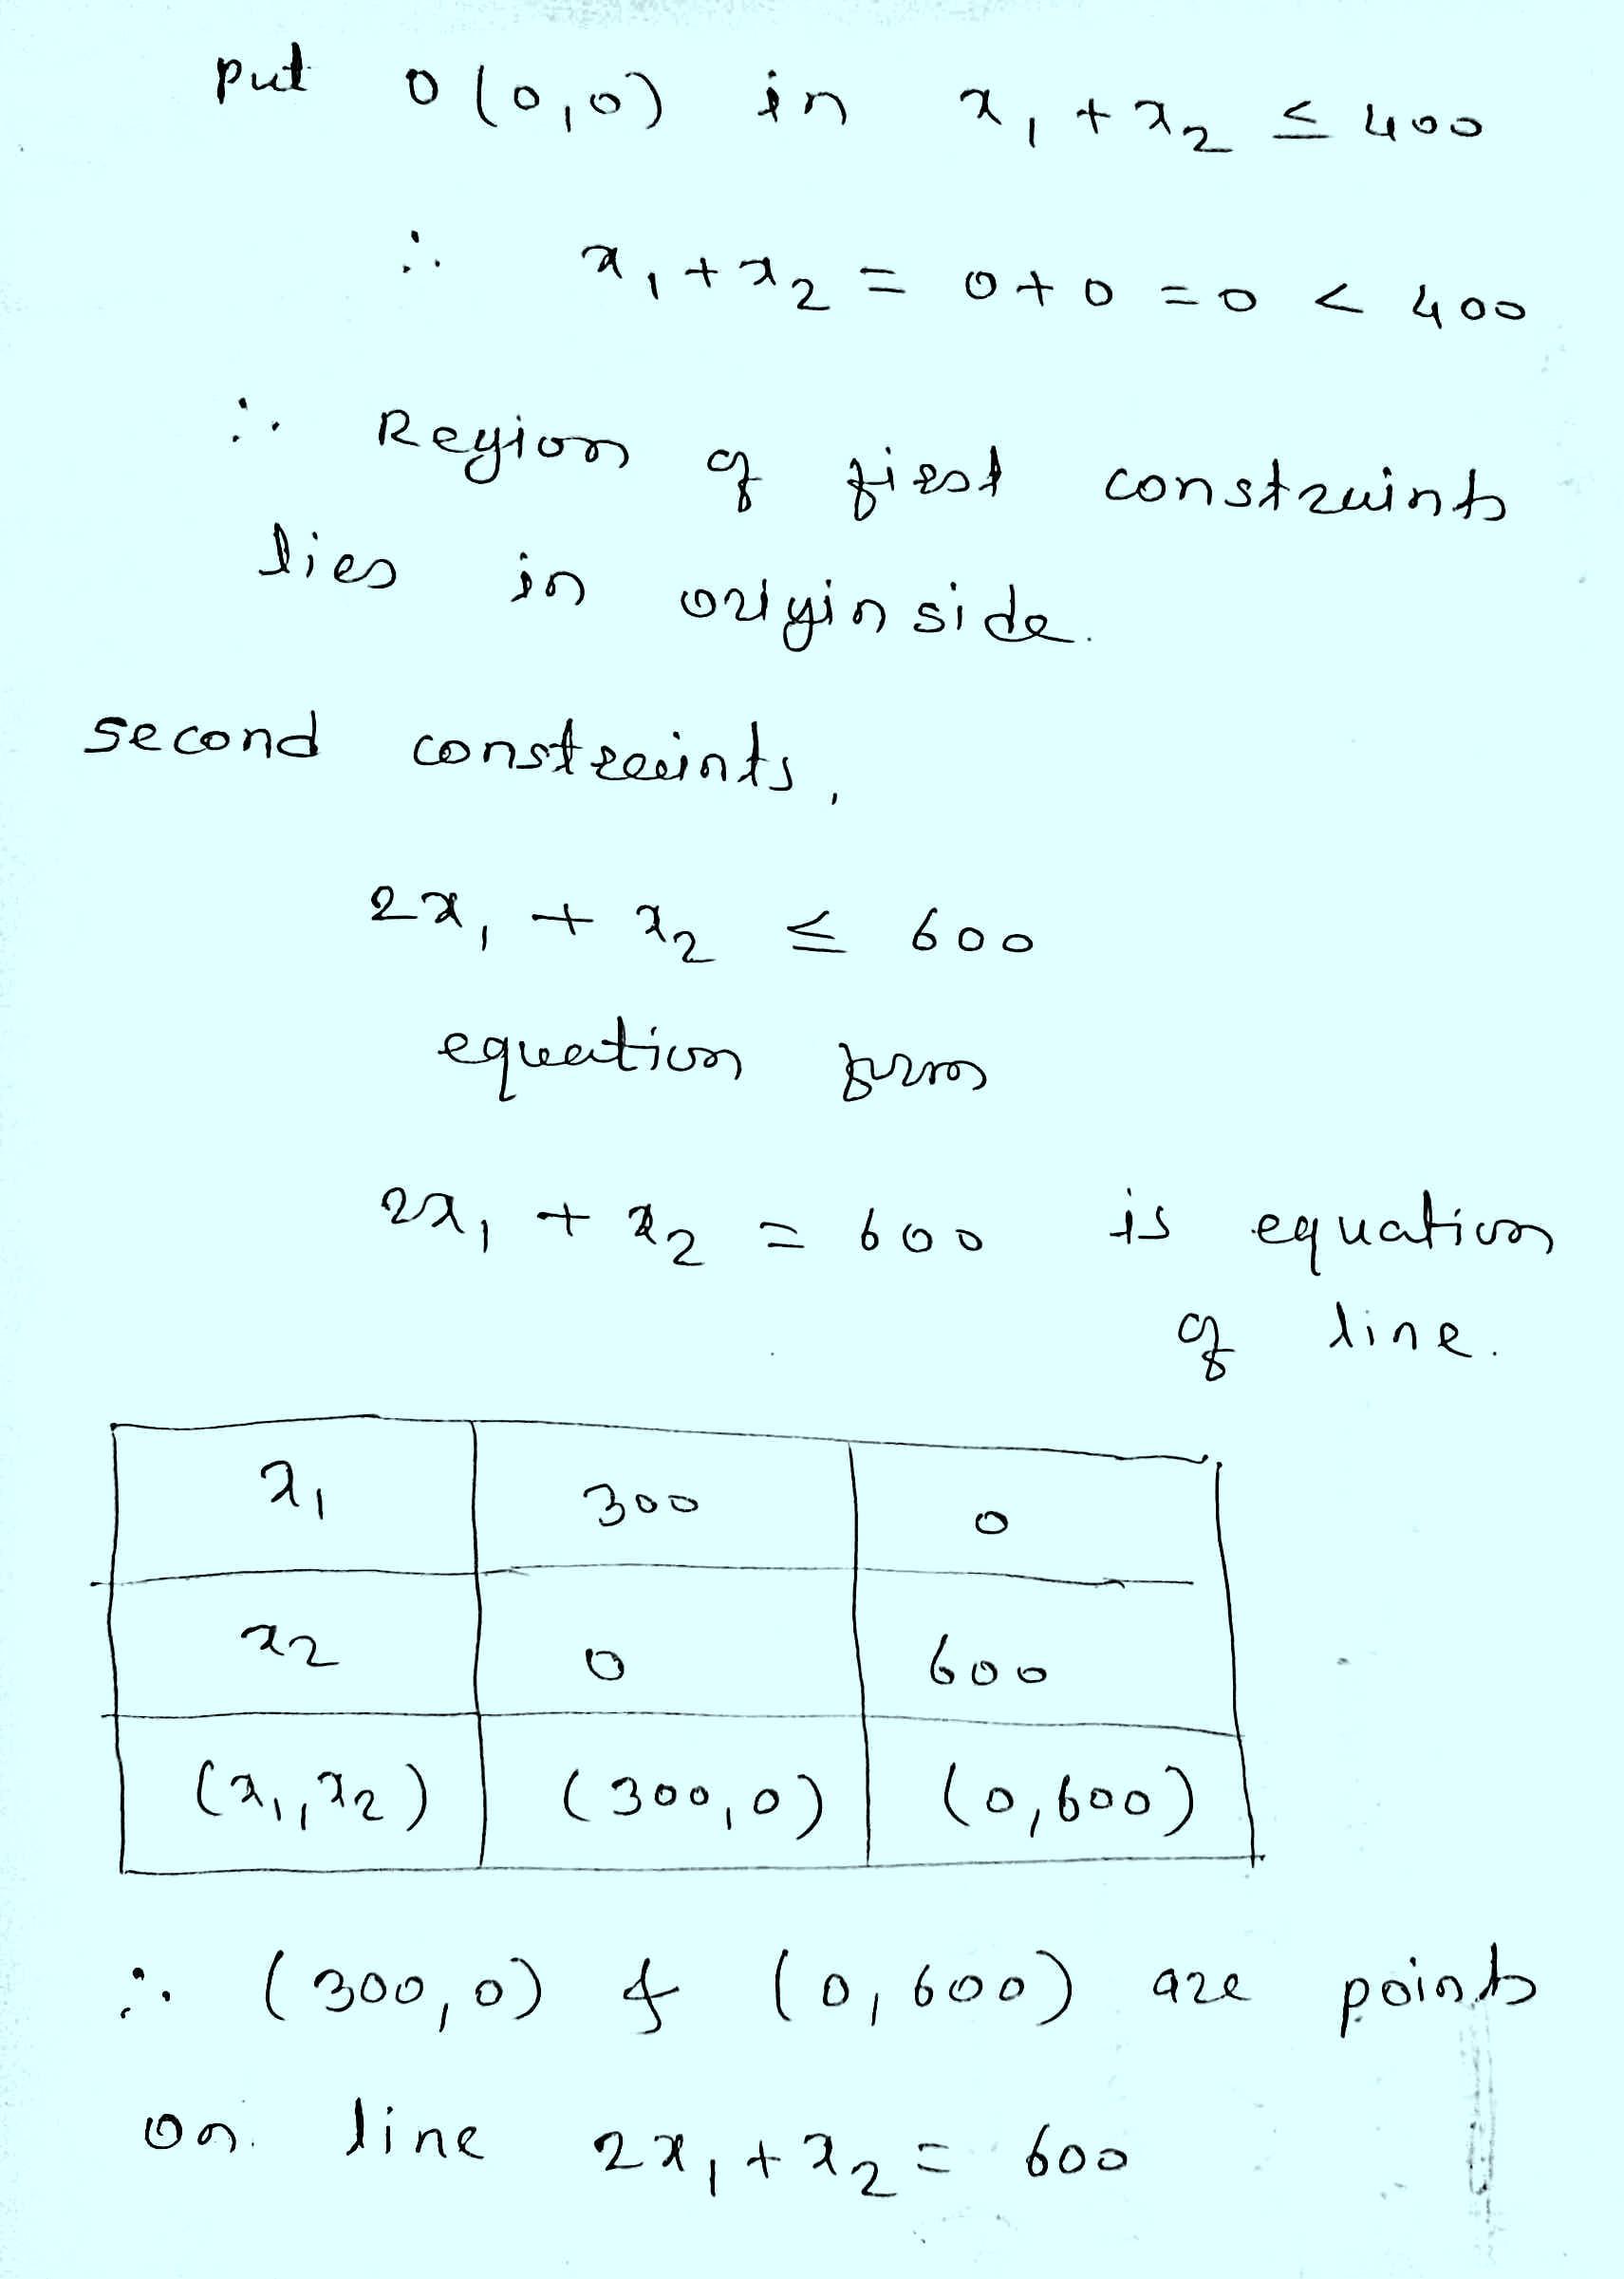 put O(0,0) in x₁ + x₂ ≤ 400
∴ x₁ + x₂ = 0 + 0 = 0 < 400
∴ Region of first constraints
lies in origin side.
second constraints,
2x₁ + x₂ ≤ 600
equation form
2x₁ + x₂ = 600 is equation
of line.
x₁ 300 0
x₂ 0 600
(x₁,x₂) (300,0) (0,600)
∴ (300,0) & (0,600) are points
on line 2x₁ + x₂ = 600